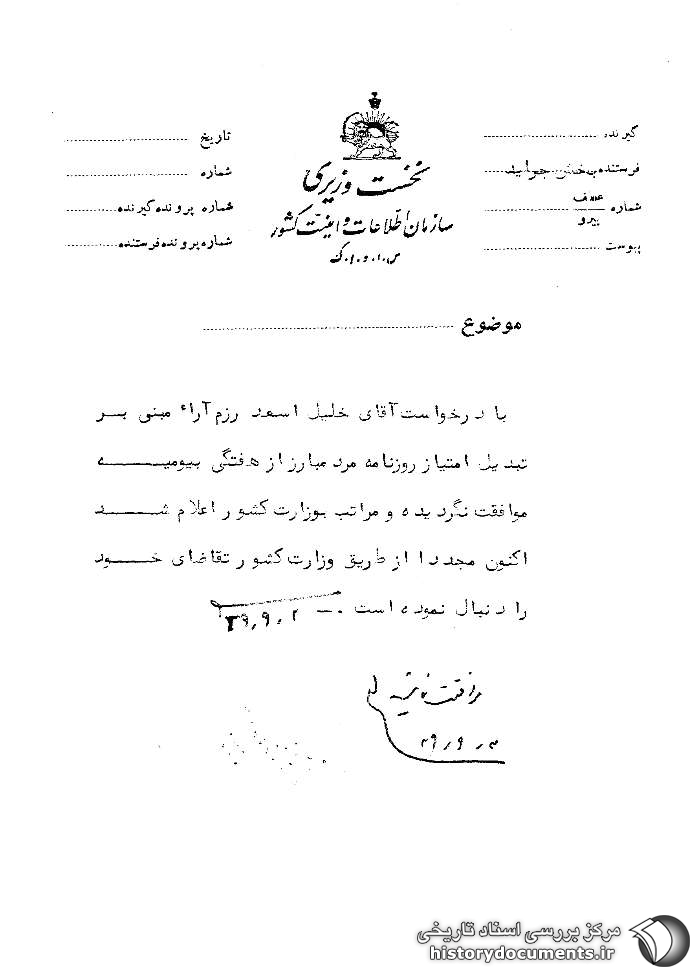 گیرنده
فرستنده بخش جراید
شماره عطف پیرو
پیوست
نخست وزیری
سازمان اطلاعات و امنیت کشور
س.ا.و.ا.ک
تاریخ
شماره
شماره پرونده گیرنده
شماره پرونده فرستنده
موضوع
با درخواست آقای خلیل اسعد رزم آراء مبنی بر
تبدیل امتیاز روزنامه مرد مبارز از هفتگی بیومیه
موافقت نگردیده و مراتب بوزارت کشور اعلام شد
اکنون مجددا از طریق وزارت کشور تقاضای خود
را دنبال نموده است .–
موافقت
مرکز بررسی اسناد تاریخی
historydocuments.ir